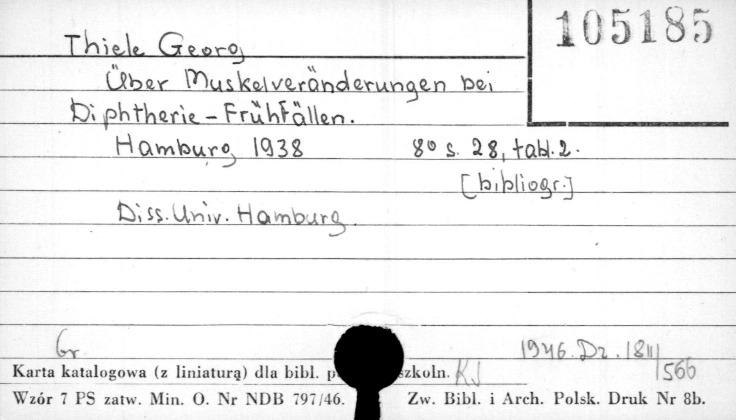 105185
Thiele Georg
Über Muskelveränderungen bei
Diphtherie-Frühfällen.
Hamburg 1938 8° s. 28, tabl. 2.
[bibliogr.]
Diss. Univ. Hamburg.
Gr. 1946. Dz. 1811/566
Karta katalogowa (z liniaturą) dla bibl. szkoln. KJ
Wzór 7 PS zatw. Min. O. Nr NDB 797/46. Zw. Bibl. i Arch. Polsk. Druk Nr 8b.